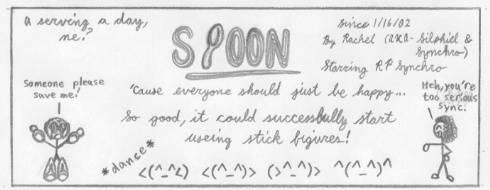 a serving a day,
ne?
SPOON
since 1/16/02
By Rachel (AKA- Silphiel &
Synchro)
Starring RP Synchro
Someone please
save me!
'Cause everyone should just be happy...
Heh, you're
too serious
sync.
So good, it could successfully start
useing stick figures!
*dance*
<(^_^<) <(^_^)> (>^_^)> ^(^_^)^